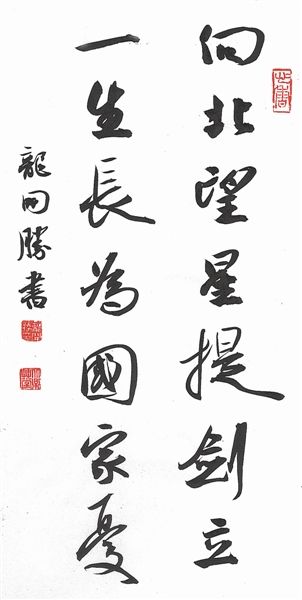 向北望星提劍立
一生長為國家憂
龍田勝書